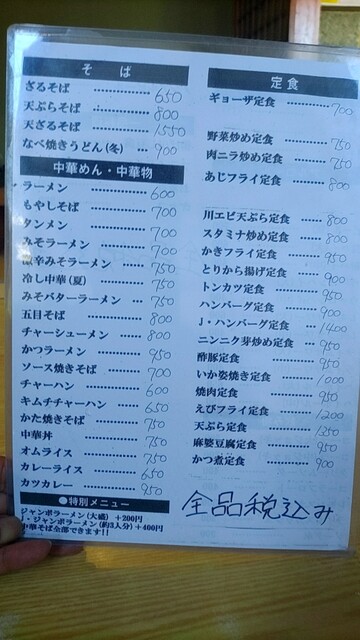 そば
ざるそば ……………… 650
天ぷらそば ……………… 800
天ざるそば ……………… 1550
なべ焼きうどん(冬) … 900
中華めん・中華物
ラーメン ……………… 600
もやしそば ……………… 700
タンメン ……………… 700
みそラーメン ……………… 700
激辛みそラーメン ………… 750
冷し中華(夏) ………… 750
みそバターラーメン ……… 750
五目そば ……………… 800
チャーシューメン ……… 800
かつラーメン ………… 950
ソース焼きそば ………… 700
チャーハン ………… 600
キムチチャーハン ……… 650
かた焼きそば ………… 750
中華丼 ……………… 750
オムライス ………… 750
カレーライス ………… 650
カツカレー ………… 950
●特別メニュー
ジャンボラーメン(大盛) +200円
J・ジャンボラーメン(約3人分) +400円
中華そば全部できます!!
定食
ギョーザ定食 ………… 700
野菜炒め定食 ………… 750
肉ニラ炒め定食 ………… 750
あじフライ定食 ………… 800
川エビ天ぷら定食 ……… 800
スタミナ炒め定食 ……… 800
かきフライ定食 ………… 950
とりから揚げ定食 ……… 900
トンカツ定食 ………… 950
ハンバーグ定食 ………… 900
J・ハンバーグ定食 …… 1400
ニンニク芽炒め定食 …… 950
酢豚定食 ………… 950
いか姿焼き定食 ………… 1000
焼肉定食 ………… 950
えびフライ定食 ………… 1200
天ぷら定食 ………… 1250
麻婆豆腐定食 ………… 900
かつ煮定食 ………… 900
全品税込み